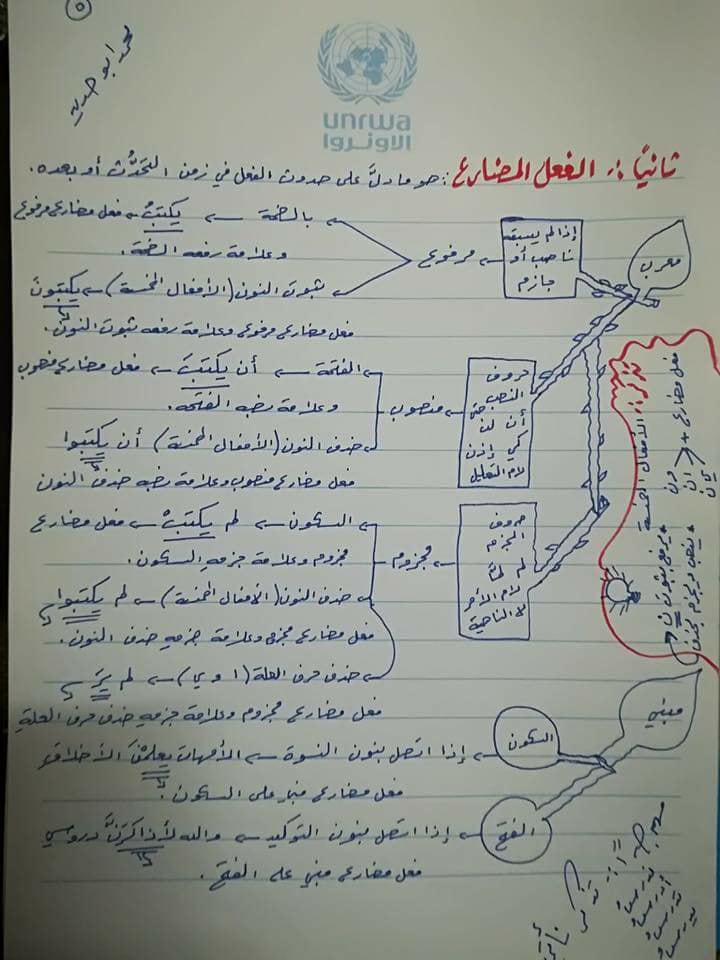 ٥
محمد ابو حديد
unrwa
الاونروا
ثانيًا: الفعل المضارع: هو ما دلَّ على حدوث الفعل في زمن التحدُّث أو بعده.
معرب
إذا لم يسبقه
ناصب أو
جازم
مرفوع
بالضمة ← يكتبُ ← فعل مضارع مرفوع
وعلامة رفعه الضمة.
ثبوت النون (الأفعال الخمسة) ← يكتبونَ
فعل مضارع مرفوع وعلامة رفعه ثبوت النون.
حروف
النصب حتى
أن لن
كي إذن
لام التعليل
منصوب
الفتحة ← أن يكتبَ ← فعل مضارع منصوب
وعلامة نصبه الفتحة.
حذف النون (الأفعال الخمسة) أن يكتبوا
فعل مضارع منصوب وعلامة نصبه حذف النون
حروف
الجزم
لم لمَّا
لام الأمر
لا الناهية
مجزوم
السكون ← لم يكتبْ ← فعل مضارع
مجزوم وعلامة جزمه السكون.
حذف النون (الأفعال الخمسة) ← لم يكتبوا
فعل مضارع مجزوم وعلامة جزمه حذف النون.
حذف حرف العلة (ا و ي) ← لم يرَ
فعل مضارع مجزوم وعلامة جزمه حذف حرف العلة
الأفعال الخمسة
فعل مضارع + ون
ان
ين
يرفع بثبوت ن
ينصب ويجزم بحذف
مبني
السكون
إذا اتصل بنون النسوة ← الأمهات يعلمْنَ الأخلاق
فعل مضارع مبني على السكون.
الفتح
إذا اتصل بنون التوكيد ← والله لأذاكرَنَّ دروسي
فعل مضارع مبني على الفتح.